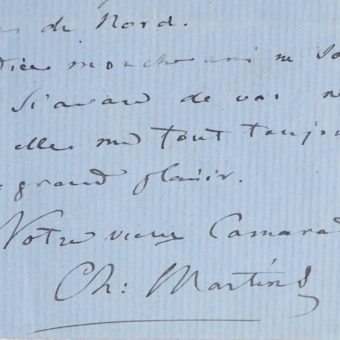 de Nord.
mon cher ami ne so
si avare de vos n
elles me font toujou
grand plaisir.
Votre vieux Camara
Ch: Martins